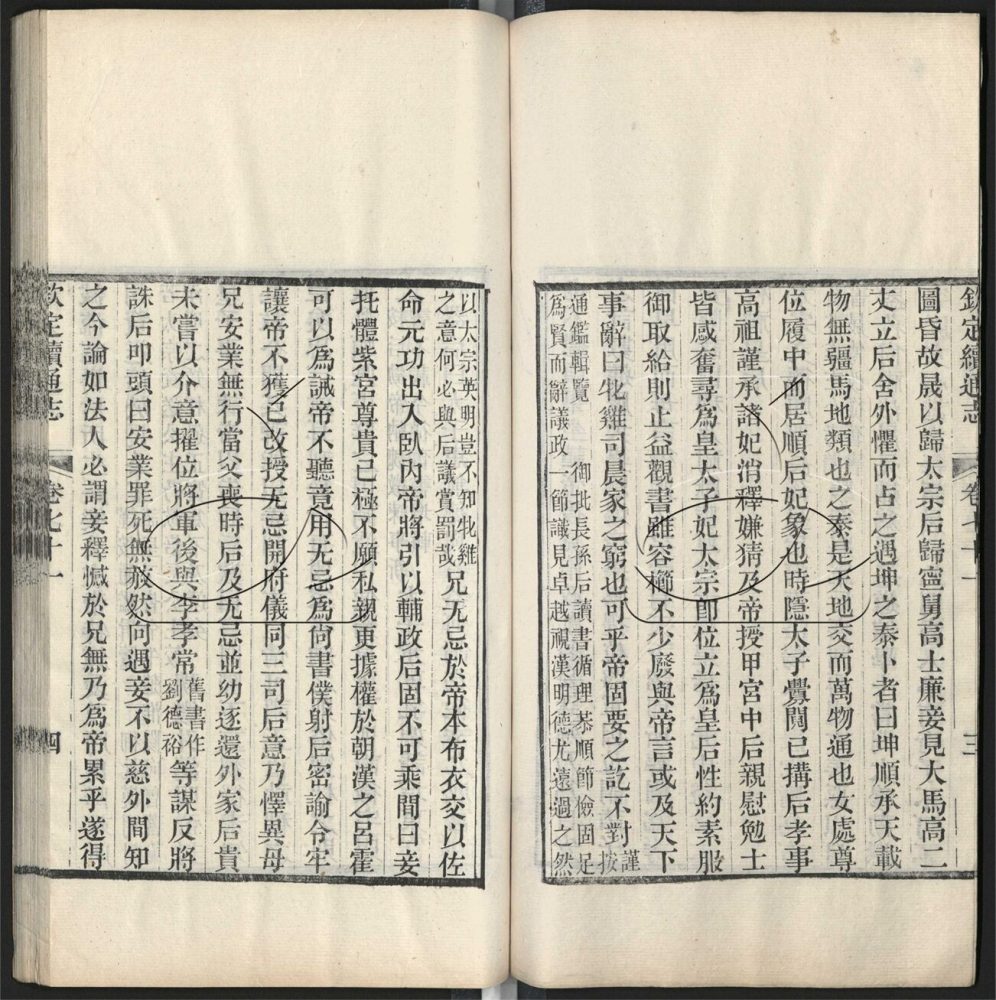 欽定續通志 卷七十一 三
圖昏故晟以歸太宗后歸寧舅高士廉妾見大馬高二
丈立后舍外懼而占之遇坤之泰卜者曰坤順承天載
物無疆馬地類也之泰是天地交而萬物通也女處尊
位履中而居順后妃象也時隱太子釁鬩已搆后孝事
高祖謹承諸妃消釋嫌猜及帝授甲宮中后親慰勉士
皆感奮尋爲皇太子妃太宗卽位立爲皇后性約素服
御取給則止益觀書雖容櫛不少廢與帝言或及天下
事辭曰牝雞司晨家之窮也可乎帝固要之訖不對謹按
通鑑輯覽 御批長孫后讀書循理恭順節儉固足
爲賢而辭議政一節識見卓越視漢明德尤遠過之然
以太宗英明豈不知牝雞
之意何必與后議賞罰哉兄无忌於帝本布衣交以佐
命元功出入臥內帝將引以輔政后固不可乘間曰妾
托體紫宮尊貴已極不願私親更據權於朝漢之呂霍
可以爲誡帝不聽竟用无忌爲尙書僕射后密諭令牢
讓帝不獲已改授无忌開府儀同三司后意乃懌異母
兄安業無行當父喪時后及无忌並幼逐還外家后貴
未嘗以介意擢位將軍後與李孝常舊書作劉德裕等謀反將
誅后叩頭曰安業罪死無赦然向遇妾不以慈外間知
之今論如法人必謂妾釋憾於兄無乃爲帝累乎遂得
欽定續通志 卷七十一 四